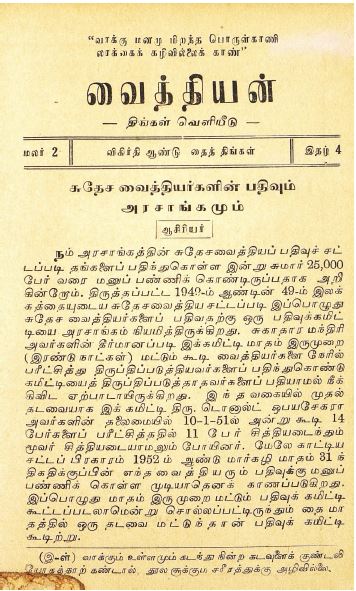 "வாக்கு மனமு மிறந்த பொருள்காணி
லாக்கைக் கழிவில்லைக் காண்"
வைத்தியன்
— திங்கள் வெளியீடு —
மலர் 2
விகிர்தி ஆண்டு தைத் திங்கள்
இதழ் 4
சுதேச வைத்தியர்களின் பதிவும்
அரசாங்கமும்
ஆசிரியர்
நம் அரசாங்கத்தின் சுதேசவைத்தியப் பதிவுச் சட்
டப்படி தங்களைப் பதிந்துகொள்ள இன்று சுமார் 25,000
பேர் வரை மனுப் பண்ணிக் கொண்டிருப்பதாக அறி
கின்றோம். திருத்தப்பட்ட 1949-ம் ஆண்டின் 49-ம் இலக்
கத்தையுடைய சுதேசவைத்திய சட்டப்படி இப்பொழுது
சுதேச வைத்தியர்களைப் பதிவதற்கு ஒரு பதிவுக்கமிட்
டியை அரசாங்கம் நியமித்திருக்கிறது. சுகாதார மந்திரி
அவர்களின் தீர்மானப்படி இக்கமிட்டி மாதம் இருமுறை
(இரண்டு காட்கள்) மட்டும் கூடி வைத்தியர்களை நேரில்
பரீட்சித்து திருப்திப்படுத்தியவர்களைப் பதிந்துகொண்டு
கமிட்டியைத் திருப்திப்படுத்தாதவர்களைப் பதியாமல் நீக்
கிவிட ஏற்பாடாயிருக்கிறது. இந்த வகையில் முதல்
தடவையாக இக் கமிட்டி திரு. டொனால்ட் ஒபயசேகரா
அவர்களின் தலைமையில் 10-1-51ல் அன்று கூடி 14
பேர்களைப் பரீட்சித்ததில் 11 பேர் சித்தியடைந்தும்
மூவர் சித்தியடையாமலும் போயினர். மேலே காட்டிய
சட்டப் பிரகாரம் 1952ம் ஆண்டு மார்கழி மாதம் 31ந்
திகதிக்குப்பின் எந்த வைத்தியரும் பதிவுக்கு மனுப்
பண்ணிக் கொள்ள முடியாதெனக் காணப்படுகிறது.
இப்பொழுது மாதம் இருமுறை மட்டும் பதிவுக் கமிட்டி
கூட்டப்படலாமென்று சொல்லப்பட்டிருந்தும் தை மா
தத்தில் ஒரு தடவை மட்டுந்தான் பதிவுக் கமிட்டி
கூடிற்று.
(இ-ள்) வாக்கும் உள்ளமும் கடந்து நின்ற கடவுளைக் குண்டலி
யோகத்தாற் கண்டால், தூல சூக்கும சரீரத்துக்கு அழிவில்லை.